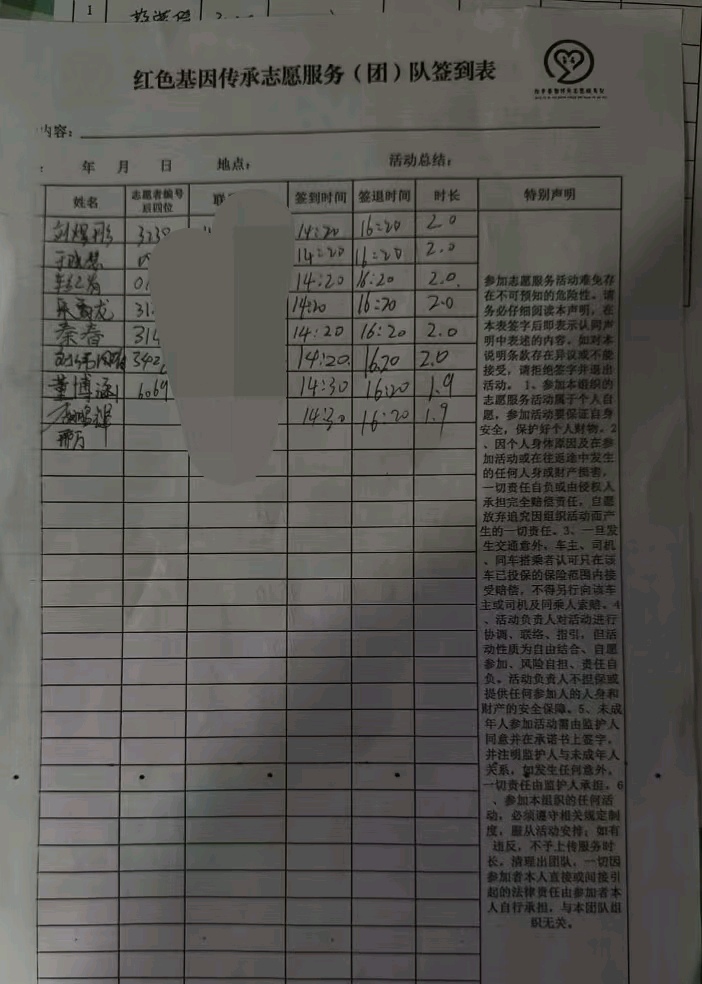 1
红色基因传承志愿服务（团）队签到表
内容：
年 月 日 地点： 活动总结：
姓名 志愿者编号后四位 签到时间 签退时间 时长 特别声明
3230 14:20 16:20 2.0
14:20 16:20 2.0
14:20 16:20 2.0
14:20 16:20 2.0
秦春 314 14:20 16:20 2.0
342 14:20 16:20 2.0
董博涵 6069 14:30 16:20 1.9
14:30 16:20 1.9
参加志愿服务活动难免存
在不可预知的危险性。请
务必仔细阅读本声明，在
本表签字后即表示认同声
明中表述的内容。如对本
说明条款存在异议或不能
接受，请拒绝签字并退出
活动。1、参加本组织的
志愿服务活动属于个人自
愿，参加活动要保证自身
安全，保护好个人财物。2
、因个人身体原因及在参
加活动或在往返途中发生
的任何人身或财产损害，
一切责任自负或由侵权人
承担完全赔偿责任，自愿
放弃追究因组织活动而产
生的一切责任。3、一旦发
生交通意外，车主、司机
、同车搭乘者认可只在该
车已投保的保险范围内接
受赔偿，不得另行向该车
主或司机及同乘人索赔。4
、活动负责人对活动进行
协调、联络、指引，但活
动性质为自由结合、自愿
参加、风险自担、责任自
负。活动负责人不担保或
提供任何参加人的人身和
财产的安全保障。5、未成
年人参加活动需由监护人
同意并在承诺书上签字，
并注明监护人与未成年人
关系，如发生任何意外，
一切责任由监护人承担。6
、参加本组织的任何活
动，必须遵守相关规定制
度，服从活动安排；如有
违反，不予上传服务时
长，清理出团队，一切因
参加者本人直接或间接引
起的法律责任由参加者本
人自行承担，与本团队组
织无关。